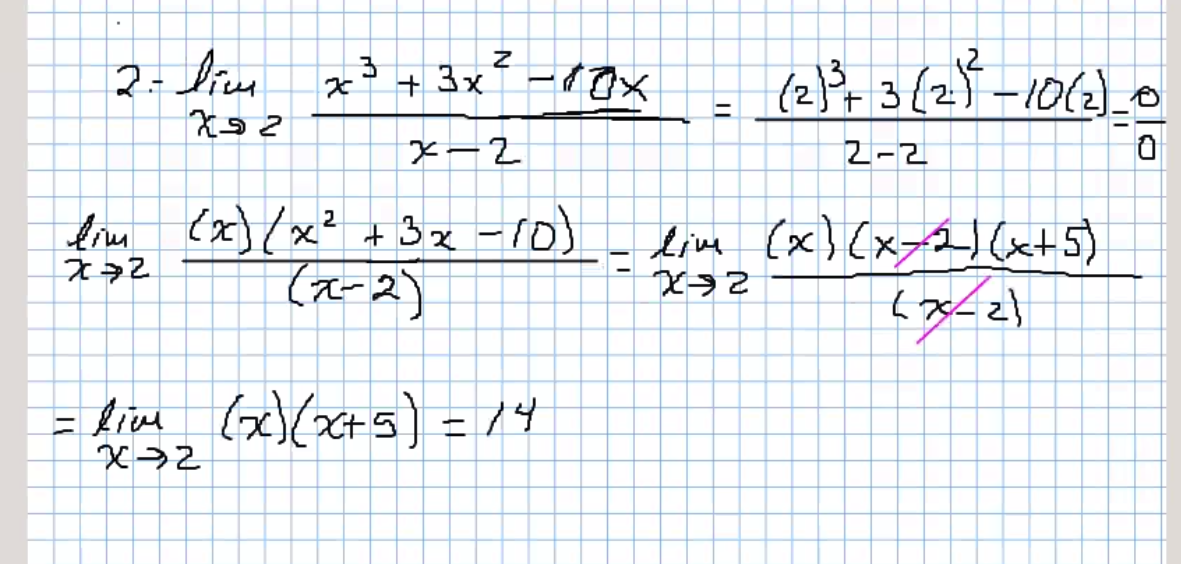 2.- lim x→2 (x³ + 3x² - 10x)/(x - 2) = ((2)³ + 3(2)² - 10(2))/(2 - 2) = 0/0
lim x→2 (x)(x² + 3x - 10)/(x - 2) = lim x→2 (x)(x - 2)(x + 5)/(x - 2)
= lim x→2 (x)(x + 5) = 14